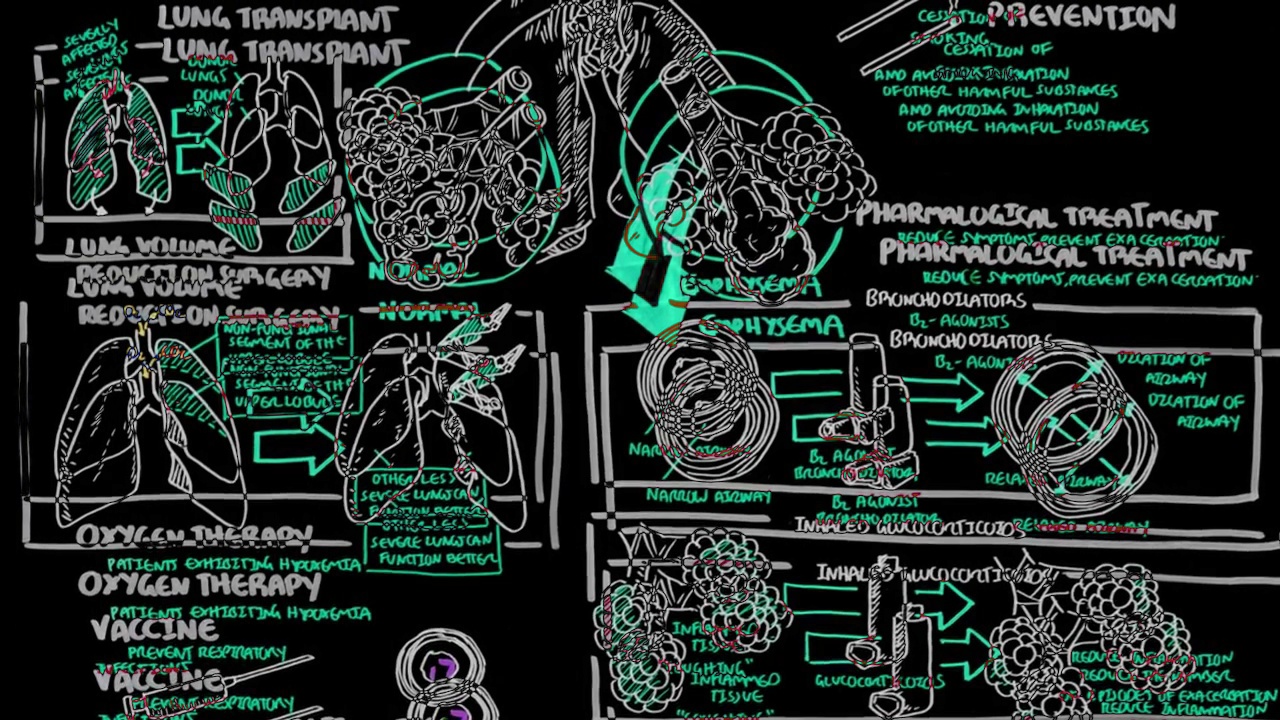 LUNG TRANSPLANT
LUNG TRANSPLANT
SEVERLY
AFFECTED
LUNGS
DONOR
LUNGS
LUNG VOLUME
REDUCTION SURGERY
LUNG VOLUME
REDUCTION SURGERY
NON-FUNCTIONAL
SEGMENT OF THE
UPPER LOBULE
SEGMENT OF THE
UPPER LOBULE
OTHER LESS
SEVERE LUNG CAN
FUNCTION BETTER
OTHER LESS
SEVERE LUNG CAN
FUNCTION BETTER
OXYGEN THERAPY
PATIENTS EXHIBITING HYPOXEMIA
OXYGEN THERAPY
PATIENTS EXHIBITING HYPOXEMIA
VACCINE
PREVENT RESPIRATORY
INFECTIONS
VACCINE
PREVENT RESPIRATORY
NORMAL
NORMAL
EMPHYSEMA
EMPHYSEMA
PREVENTION
CESSATION OF
SMOKING
CESSATION OF
AND AVOIDING INHALATION
OF OTHER HARMFUL SUBSTANCES
AND AVOIDING INHALATION
OF OTHER HARMFUL SUBSTANCES
PHARMALOGICAL TREATMENT
REDUCE SYMPTOMS, PREVENT EXACERBATION
PHARMALOGICAL TREATMENT
REDUCE SYMPTOMS, PREVENT EXACERBATION
BRONCHODILATORS
B2-AGONISTS
BRONCHODILATORS
B2-AGONISTS
NARROW AIRWAY
NARROW AIRWAY
B2 AGONIST
BRONCHODILATOR
B2 AGONIST
BRONCHODILATOR
DILATION OF
AIRWAY
DILATION OF
AIRWAY
RELAXED AIRWAY
RELAXED AIRWAY
INHALED GLUCOCORTICOIDS
INHALED GLUCOCORTICOIDS
INFLAMMED
TISSUE
"COUGHING"
INFLAMMED
TISSUE
"COUGHING"
GLUCOCORTICOIDS
REDUCE INFLAMMATION
REDUCE THE NUMBER
OF EPISODES OF EXACERBATION
REDUCE INFLAMMATION